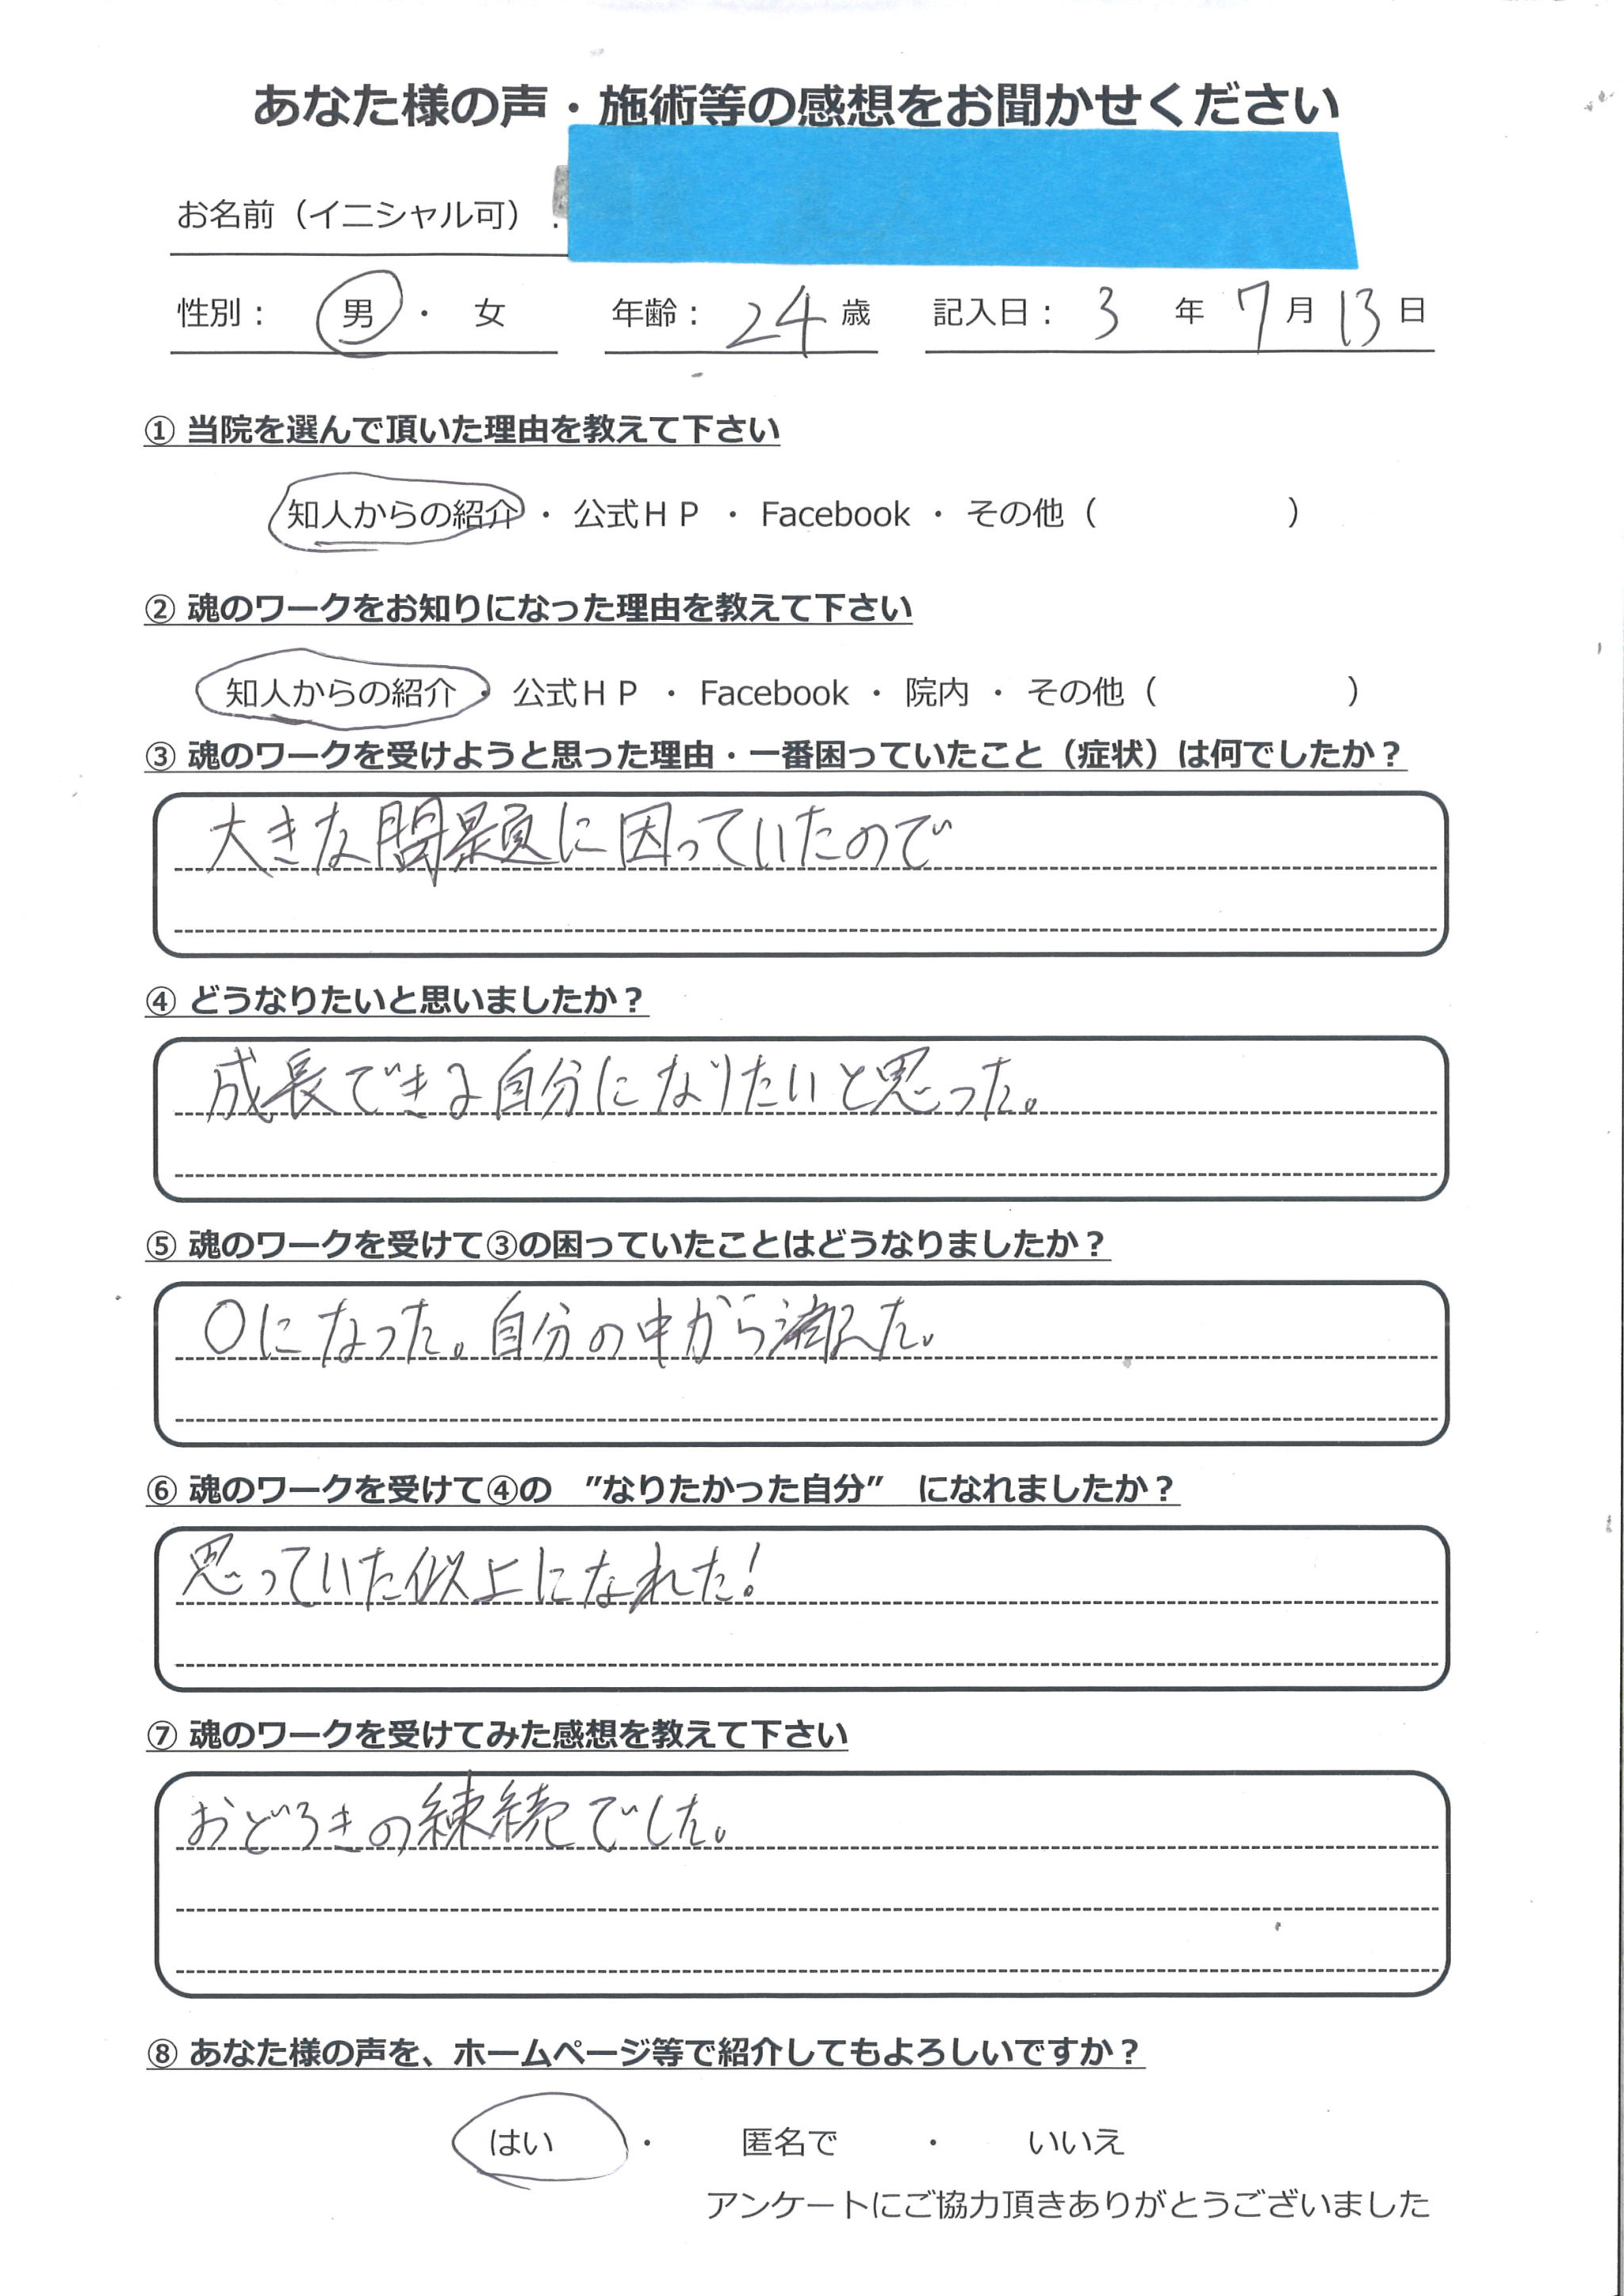 あなた様の声・施術等の感想をお聞かせください
お名前（イニシャル可）
性別： 男 ・ 女 年齢： 24 歳 記入日： 3 年 7 月 13 日
① 当院を選んで頂いた理由を教えて下さい
知人からの紹介 ・ 公式ＨＰ ・ Facebook ・ その他（ ）
② 魂のワークをお知りになった理由を教えて下さい
知人からの紹介 ・ 公式ＨＰ ・ Facebook ・ 院内 ・ その他（ ）
③ 魂のワークを受けようと思った理由・一番困っていたこと（症状）は何でしたか？
大きな問題に困っていたので
④ どうなりたいと思いましたか？
成長できる自分になりたいと思った。
⑤ 魂のワークを受けて③の困っていたことはどうなりましたか？
０になった。自分の中から消えた。
⑥ 魂のワークを受けて④の ”なりたかった自分” になれましたか？
思っていた似上になれた！
⑦ 魂のワークを受けてみた感想を教えて下さい
おどろきの練続でした。
⑧ あなた様の声を、ホームページ等で紹介してもよろしいですか？
はい ・ 匿名で ・ いいえ
アンケートにご協力頂きありがとうございました